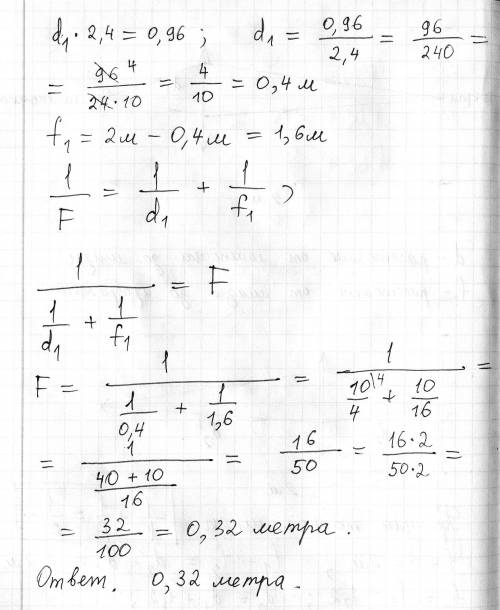 d₁ · 2,4 = 0,96 ; d₁ = 0,96/2,4 = 96/240 =
= 96 4/24·10 = 4/10 = 0,4 м
f₁ = 2м − 0,4м = 1,6м
1/F = 1/d₁ + 1/f₁ )
1/(1/d₁ + 1/f₁) = F
F = 1/(1/0,4 + 1/1,6) = 1/(10\4/4 + 10/16) =
= 1/((40 + 10)/16) = 16/50 = 16·2/50·2 =
= 32/100 = 0,32 метра.
Ответ. 0,32 метра.